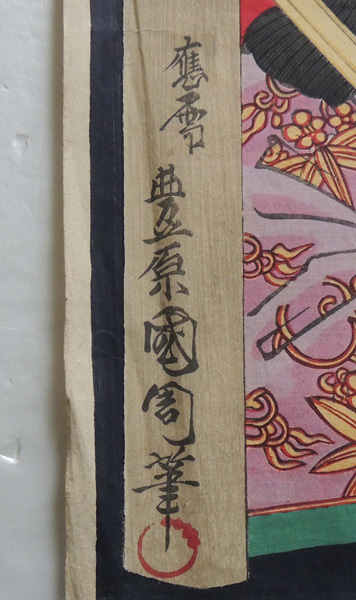 應需
豊原國周筆